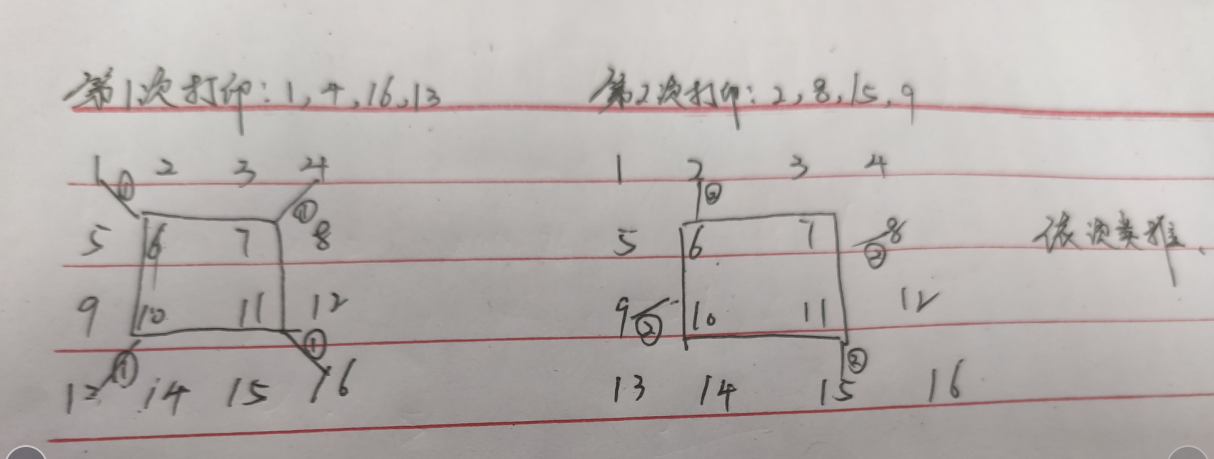 第1次打印：1，4，16，13
第2次打印：2，8，15，9
1 2 3 4
① ①
5 6 7 8
9 10 11 12
① ①
13 14 15 16
1 2 3 4
②
5 6 7 8
②
9 10 11 12
② ②
13 14 15 16
依次类推、